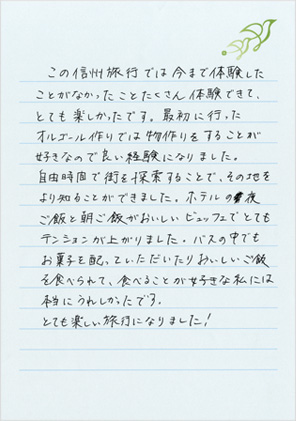 この信州旅行では今まで体験した
ことがなかったことたくさん体験できて、
とても楽しかったです。最初に行った
オルゴール作りでは物作りをすることが
好きなので良い経験になりました。
自由時間で街を探索することで、その地を
より知ることができました。ホテルの夜
ご飯と朝ご飯がおいしいビュッフェでとても
テンションが上がりました。バスの中でも
お菓子を配っていただいたりおいしいご飯
を食べられて、食べることが好きな私には
本当にうれしかったです。
とても楽しい旅行になりました！